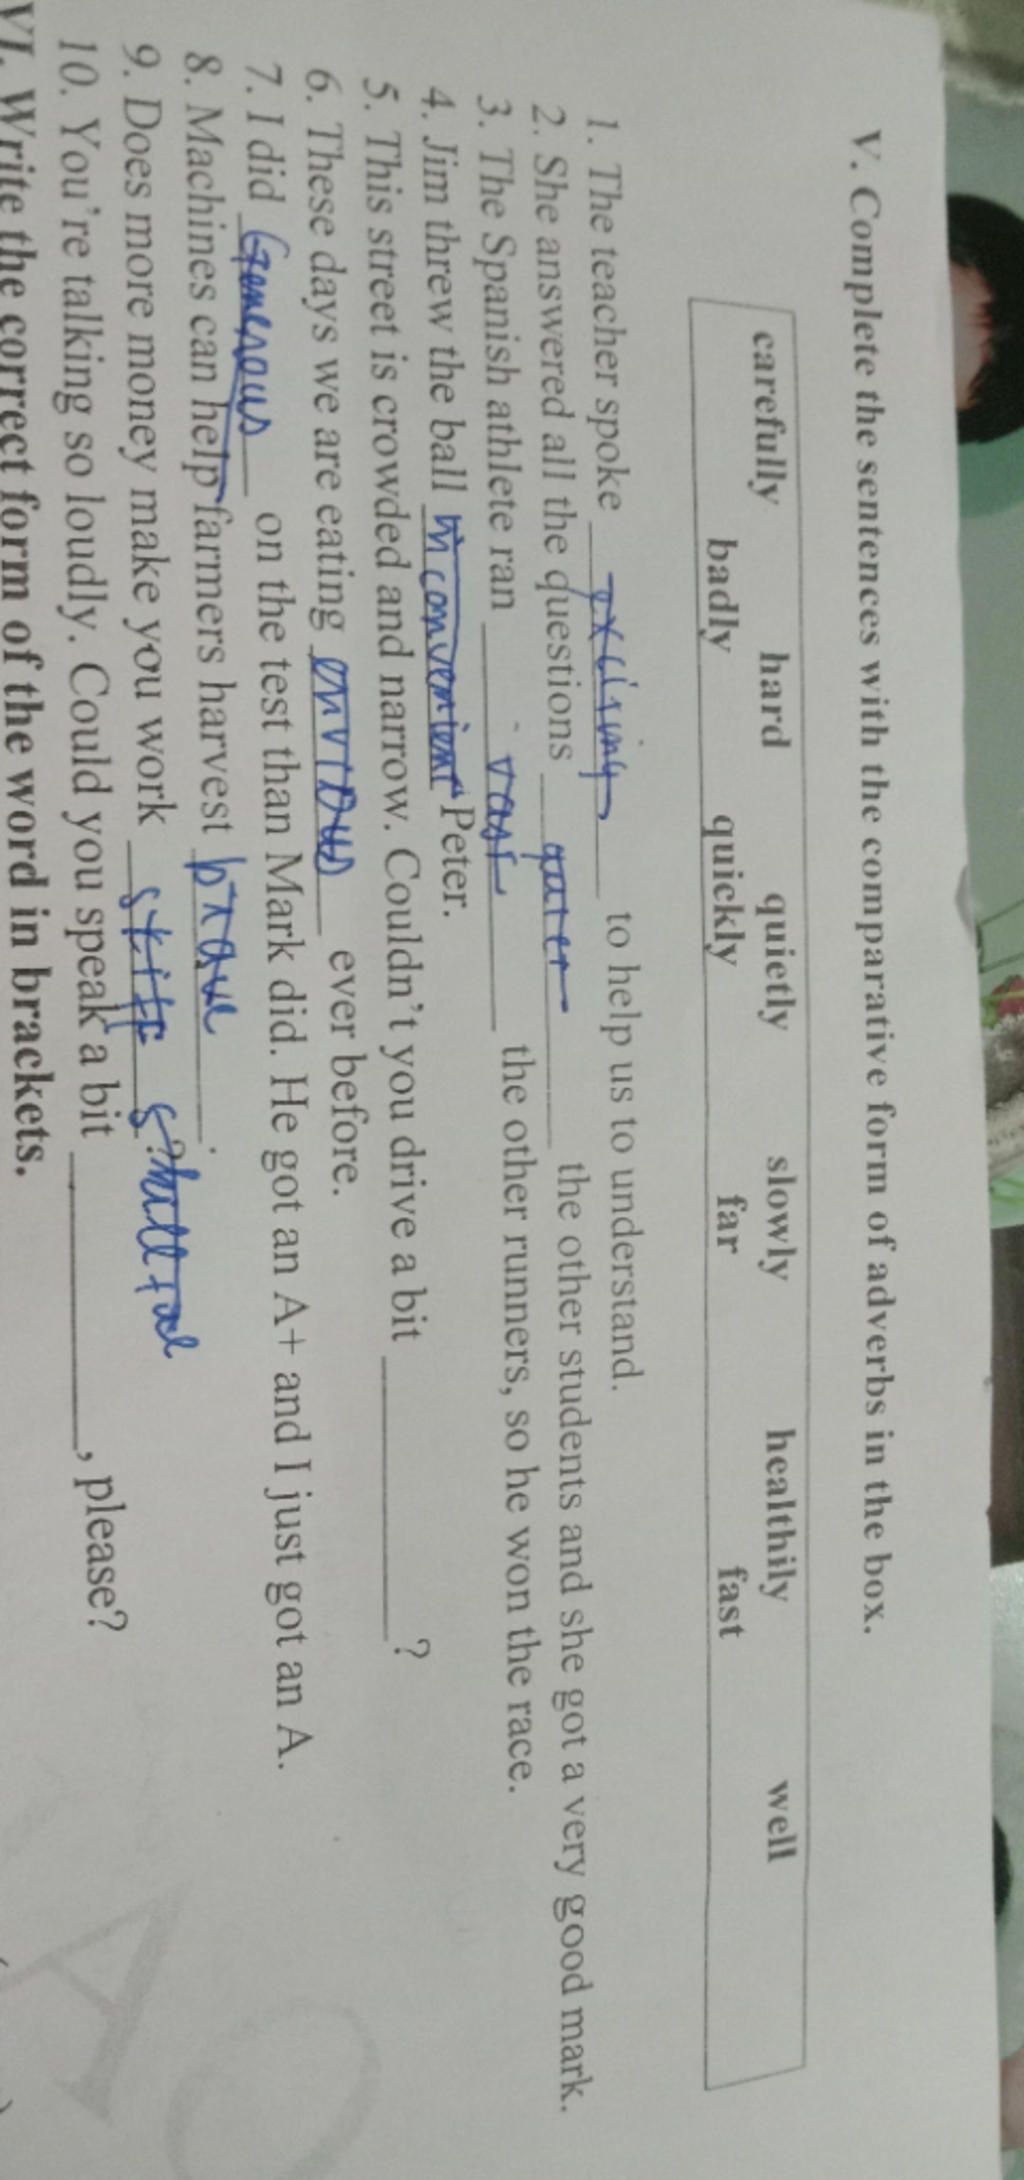 V. Complete the sentences with the comparative form of adverbs in the box.
carefully hard quietly slowly healthily well
badly quickly far fast
1. The teacher spoke exciting to help us to understand.
2. She answered all the questions the other students and she got a very good mark.
3. The Spanish athlete ran vast the other runners, so he won the race.
4. Jim threw the ball inconvenient Peter.
5. This street is crowded and narrow. Couldn't you drive a bit ?
6. These days we are eating envious ever before.
7. I did Generous on the test than Mark did. He got an A+ and I just got an A.
8. Machines can help farmers harvest brave.
9. Does more money make you work ?
10. You're talking so loudly. Could you speak a bit , please?
VI. Write the correct form of the word in brackets.